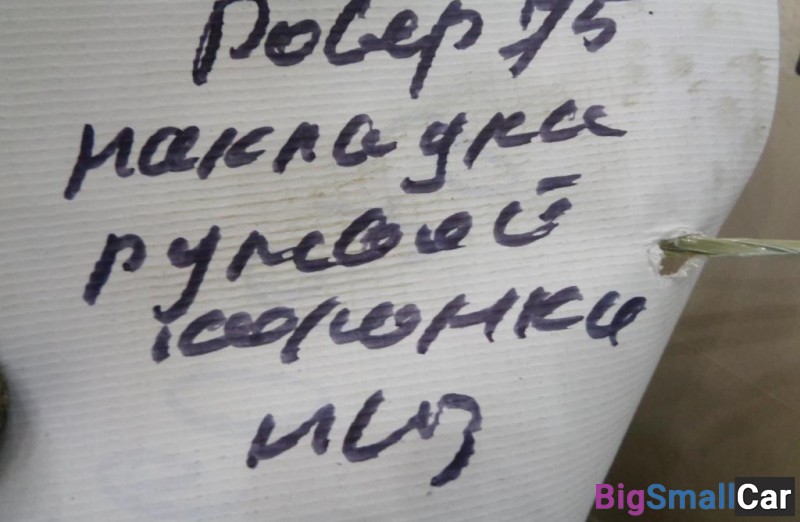 Ровер 75
накладка
рулевой
колонки
низ
BigSmallCar